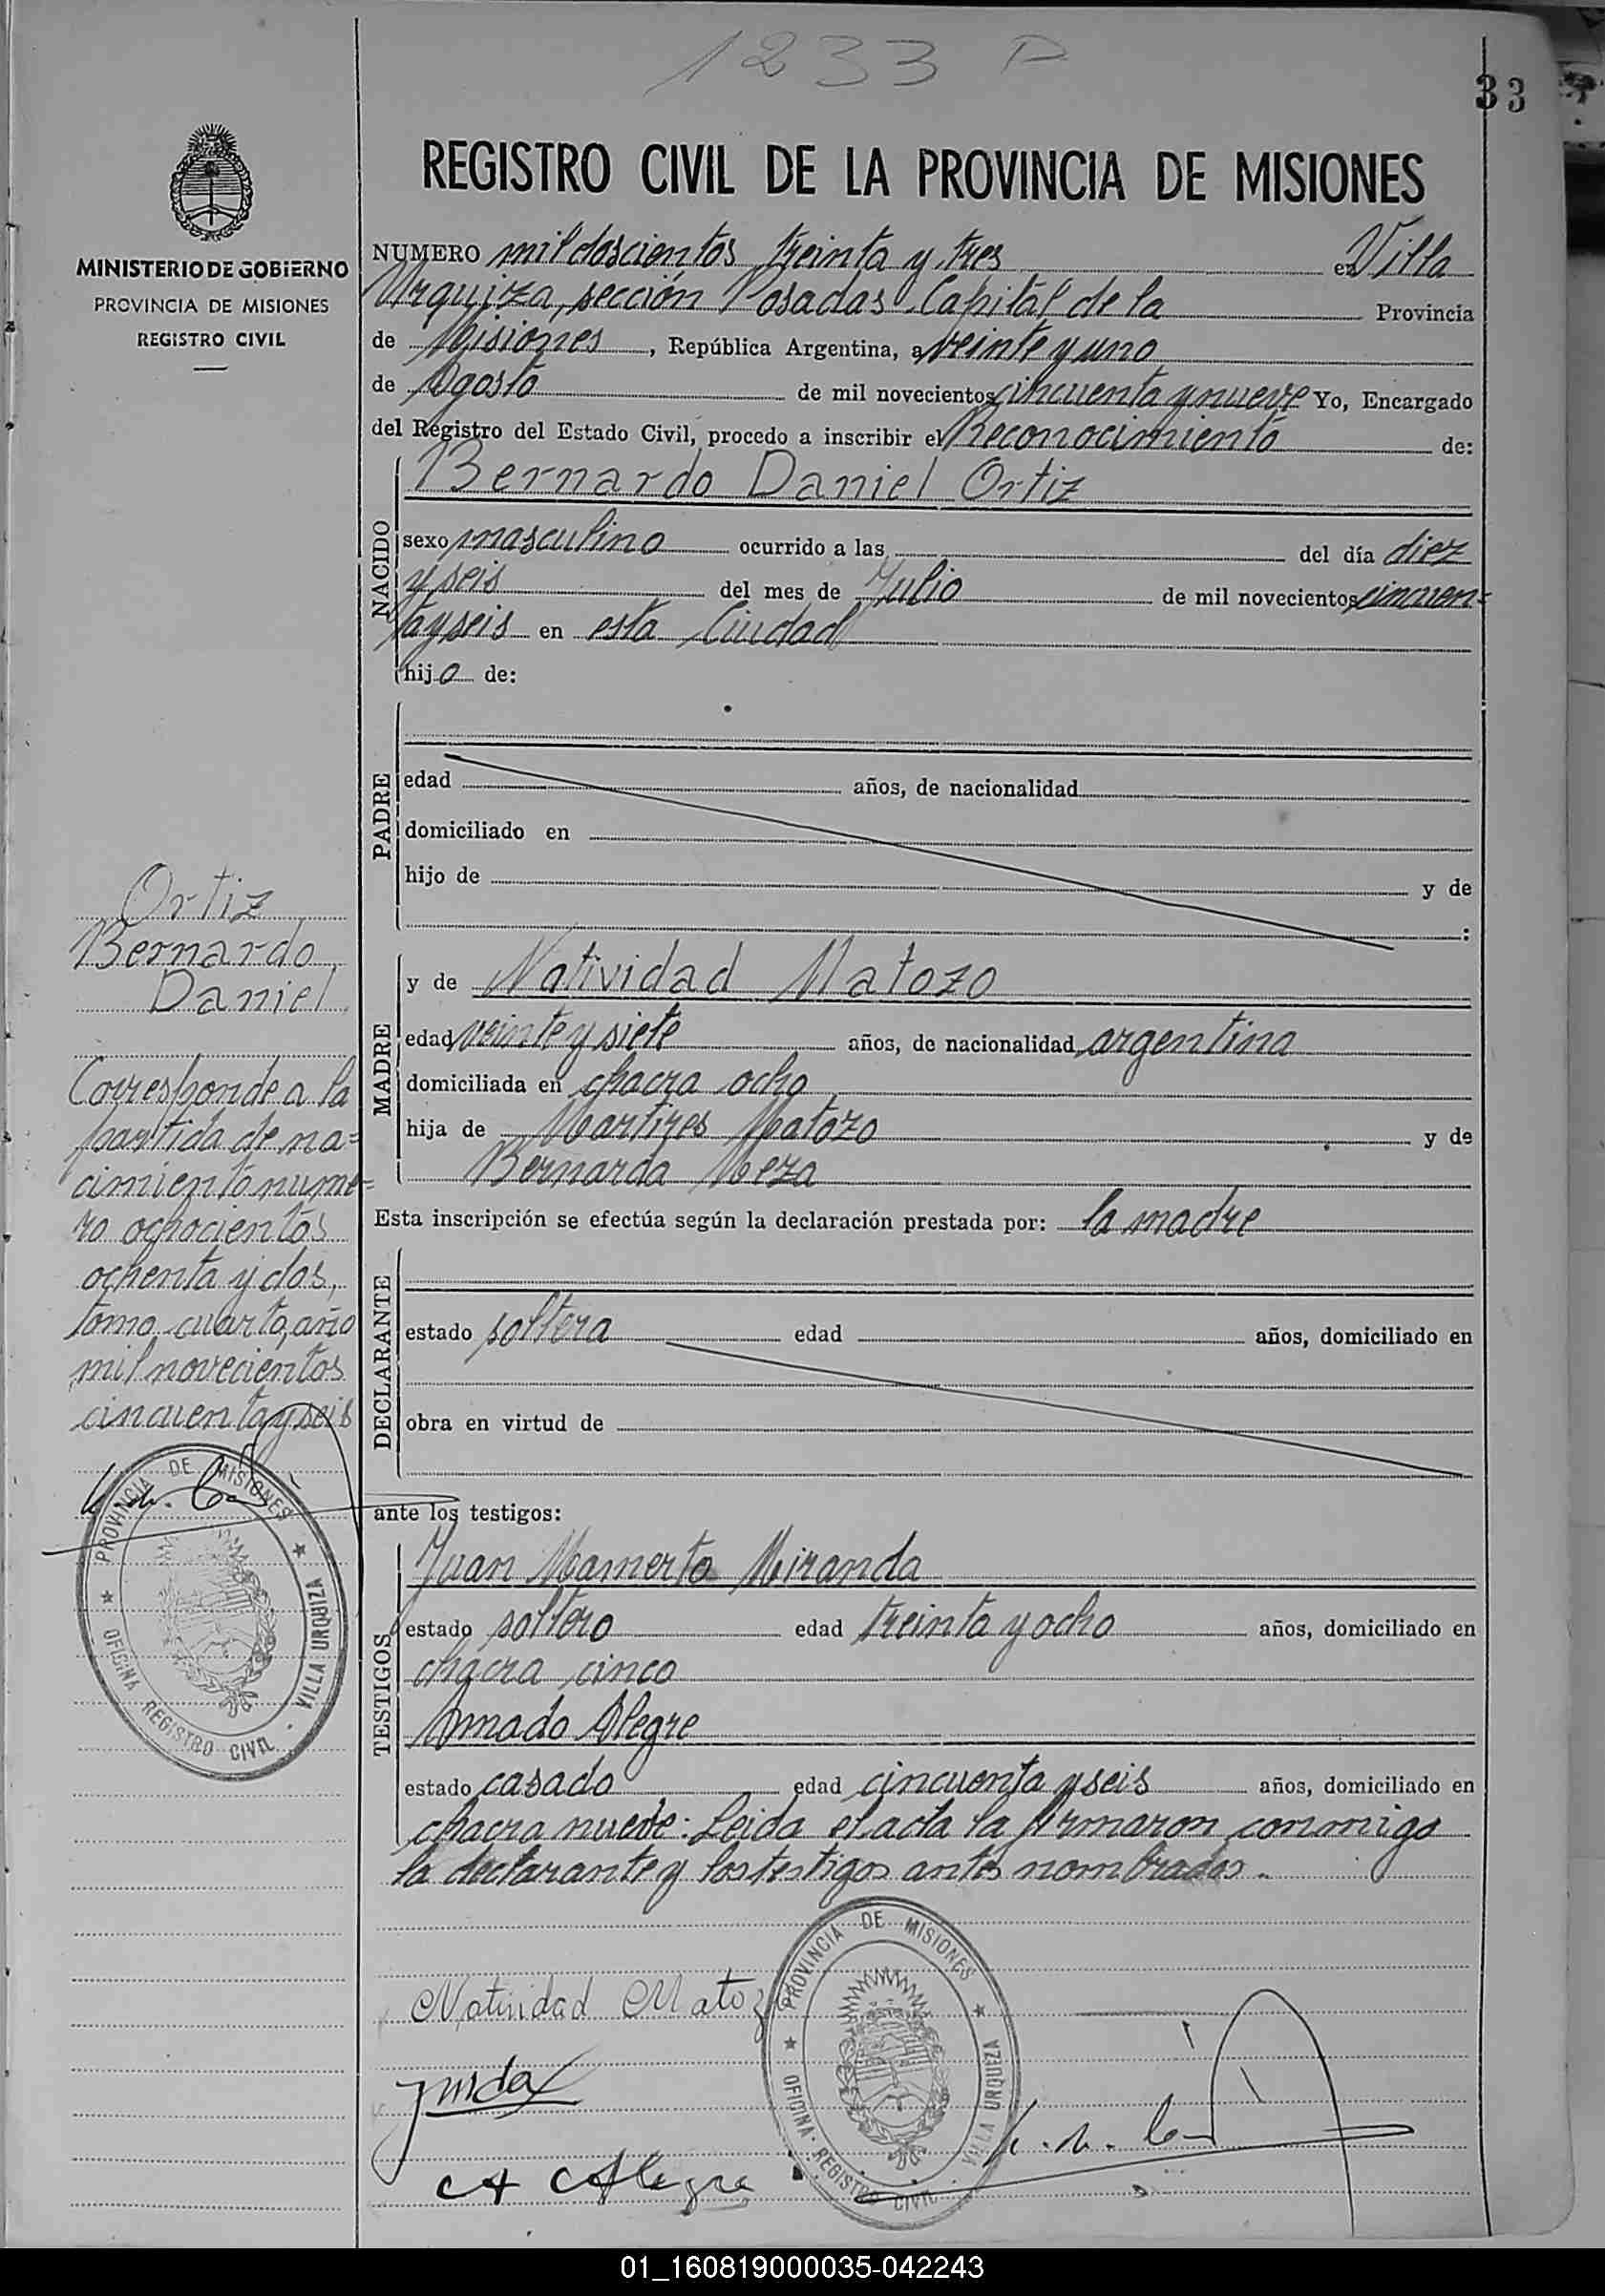 1233 P
33
MINISTERIO DE GOBIERNO
PROVINCIA DE MISIONES
REGISTRO CIVIL
REGISTRO CIVIL DE LA PROVINCIA DE MISIONES
NUMERO mil doscientos treinta y tres en Villa
Urquiza, sección Posadas Capital de la Provincia
de Misiones, República Argentina, a veinte y uno
de Agosto de mil novecientos cincuenta y nueve Yo, Encargado
del Registro del Estado Civil, procedo a inscribir el Reconocimiento de:
NACIDO
Bernardo Daniel Ortiz
sexo masculino ocurrido a las del día diez
y seis del mes de Julio de mil novecientos cincuen=
ta y seis en esta Ciudad
hijo de:
PADRE
edad años, de nacionalidad
domiciliado en
hijo de y de
:
MADRE
y de Natividad Matozo
edad veinte y siete años, de nacionalidad argentina
domiciliada en chacra ocho
hija de Martires Matozo y de
Bernarda Meza
Esta inscripción se efectúa según la declaración prestada por: la madre
DECLARANTE
estado soltera edad años, domiciliado en
obra en virtud de
ante los testigos:
TESTIGOS
Juan Mamerto Miranda
estado soltero edad treinta y ocho años, domiciliado en
chacra cinco
Amado Alegre
estado casado edad cincuenta y seis años, domiciliado en
chacra nueve: Leida el acta la firmaron conmigo
la declarante y los testigos antes nombrados.
Natividad Matoz
A Alegre
PROVINCIA DE MISIONES
VILLA URQUIZA
OFICINA REGISTRO CIVIL
Ortiz
Bernardo
Daniel
Corresponde a la
partida de na=
cimiento nume=
ro ochocientos
ochenta y dos,
tomo cuarto, año
mil novecientos
cincuenta y seis
PROVINCIA DE MISIONES
VILLA URQUIZA
OFICINA REGISTRO CIVIL
01_160819000035-042243